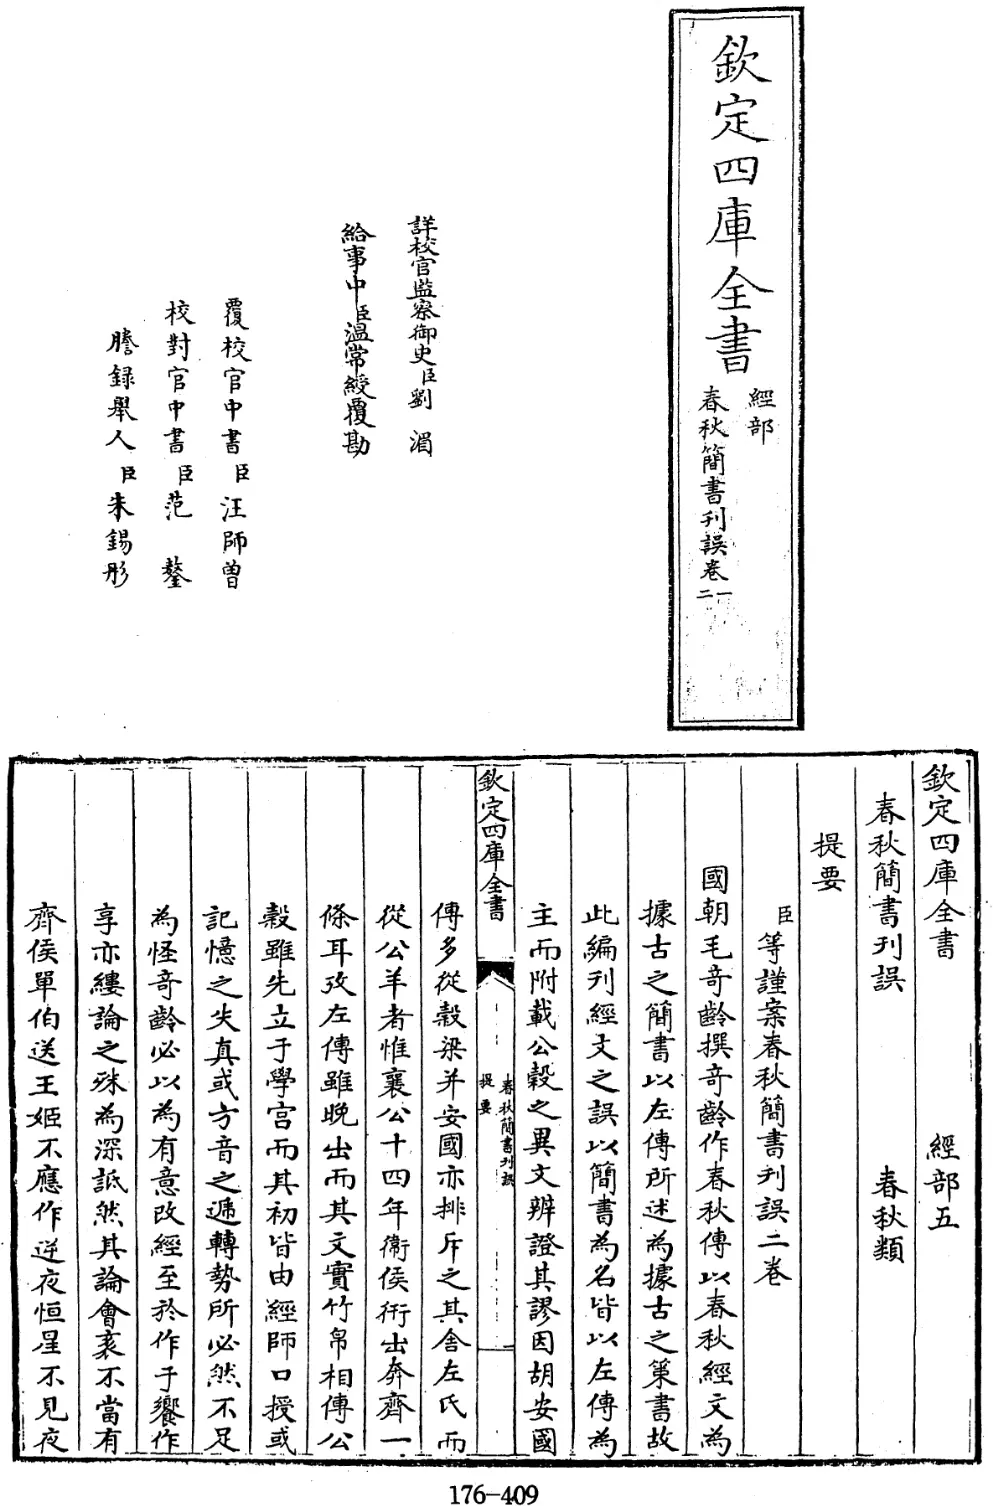 欽定四庫全書
經部
春秋簡書刋誤卷一
二
詳校官監察御史臣劉湄
給事中臣溫常綬覆勘
覆校官中書臣汪師曾
校對官中書臣范鏊
謄録舉人臣朱錫彤
欽定四庫全書 經部五
春秋簡書刋誤 春秋類
提要
臣等謹案春秋簡書刋誤二巻
國朝毛竒齡撰竒齡作春秋傳以春秋經文為
據古之簡書以左傳所述為據古之策書故
此編刋經文之誤以簡書為名皆以左傳為
主而附載公糓之異文辨證其謬因胡安國
欽定四庫全書
春秋簡書刋誤
提要
傳多從糓梁并安國亦排斥之其舎左氏而
從公羊者惟襄公十四年衞侯衎出奔齊一
條耳攷左傳雖晩出而其文實竹帛相傳公
糓雖先立于學宫而其初皆由經師口授或
記憶之失真或方音之遞轉勢所必然不足
為怪竒齡必以為有意改經至扵作于饗作
享亦縷論之殊為深詆然其論會袲不當有
齊侯單伯送王姬不應作逆夜恒星不見夜
176-409